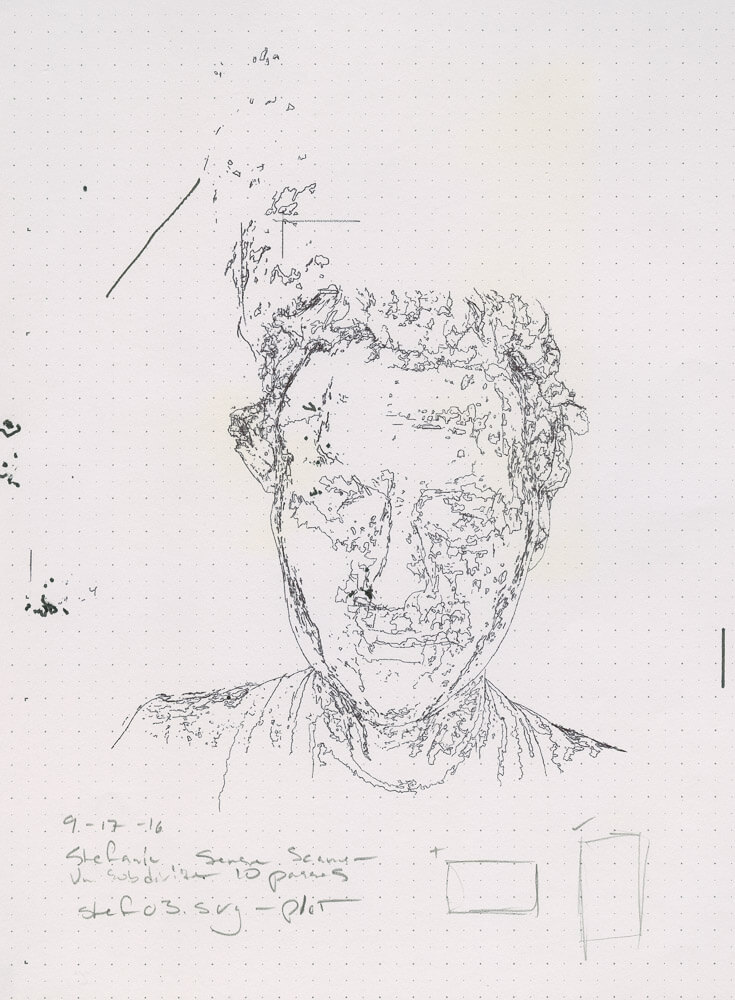 9-17-16
Stefanie Sense Scann-
Un Subdivider 10 passes
stef03.svg - plot